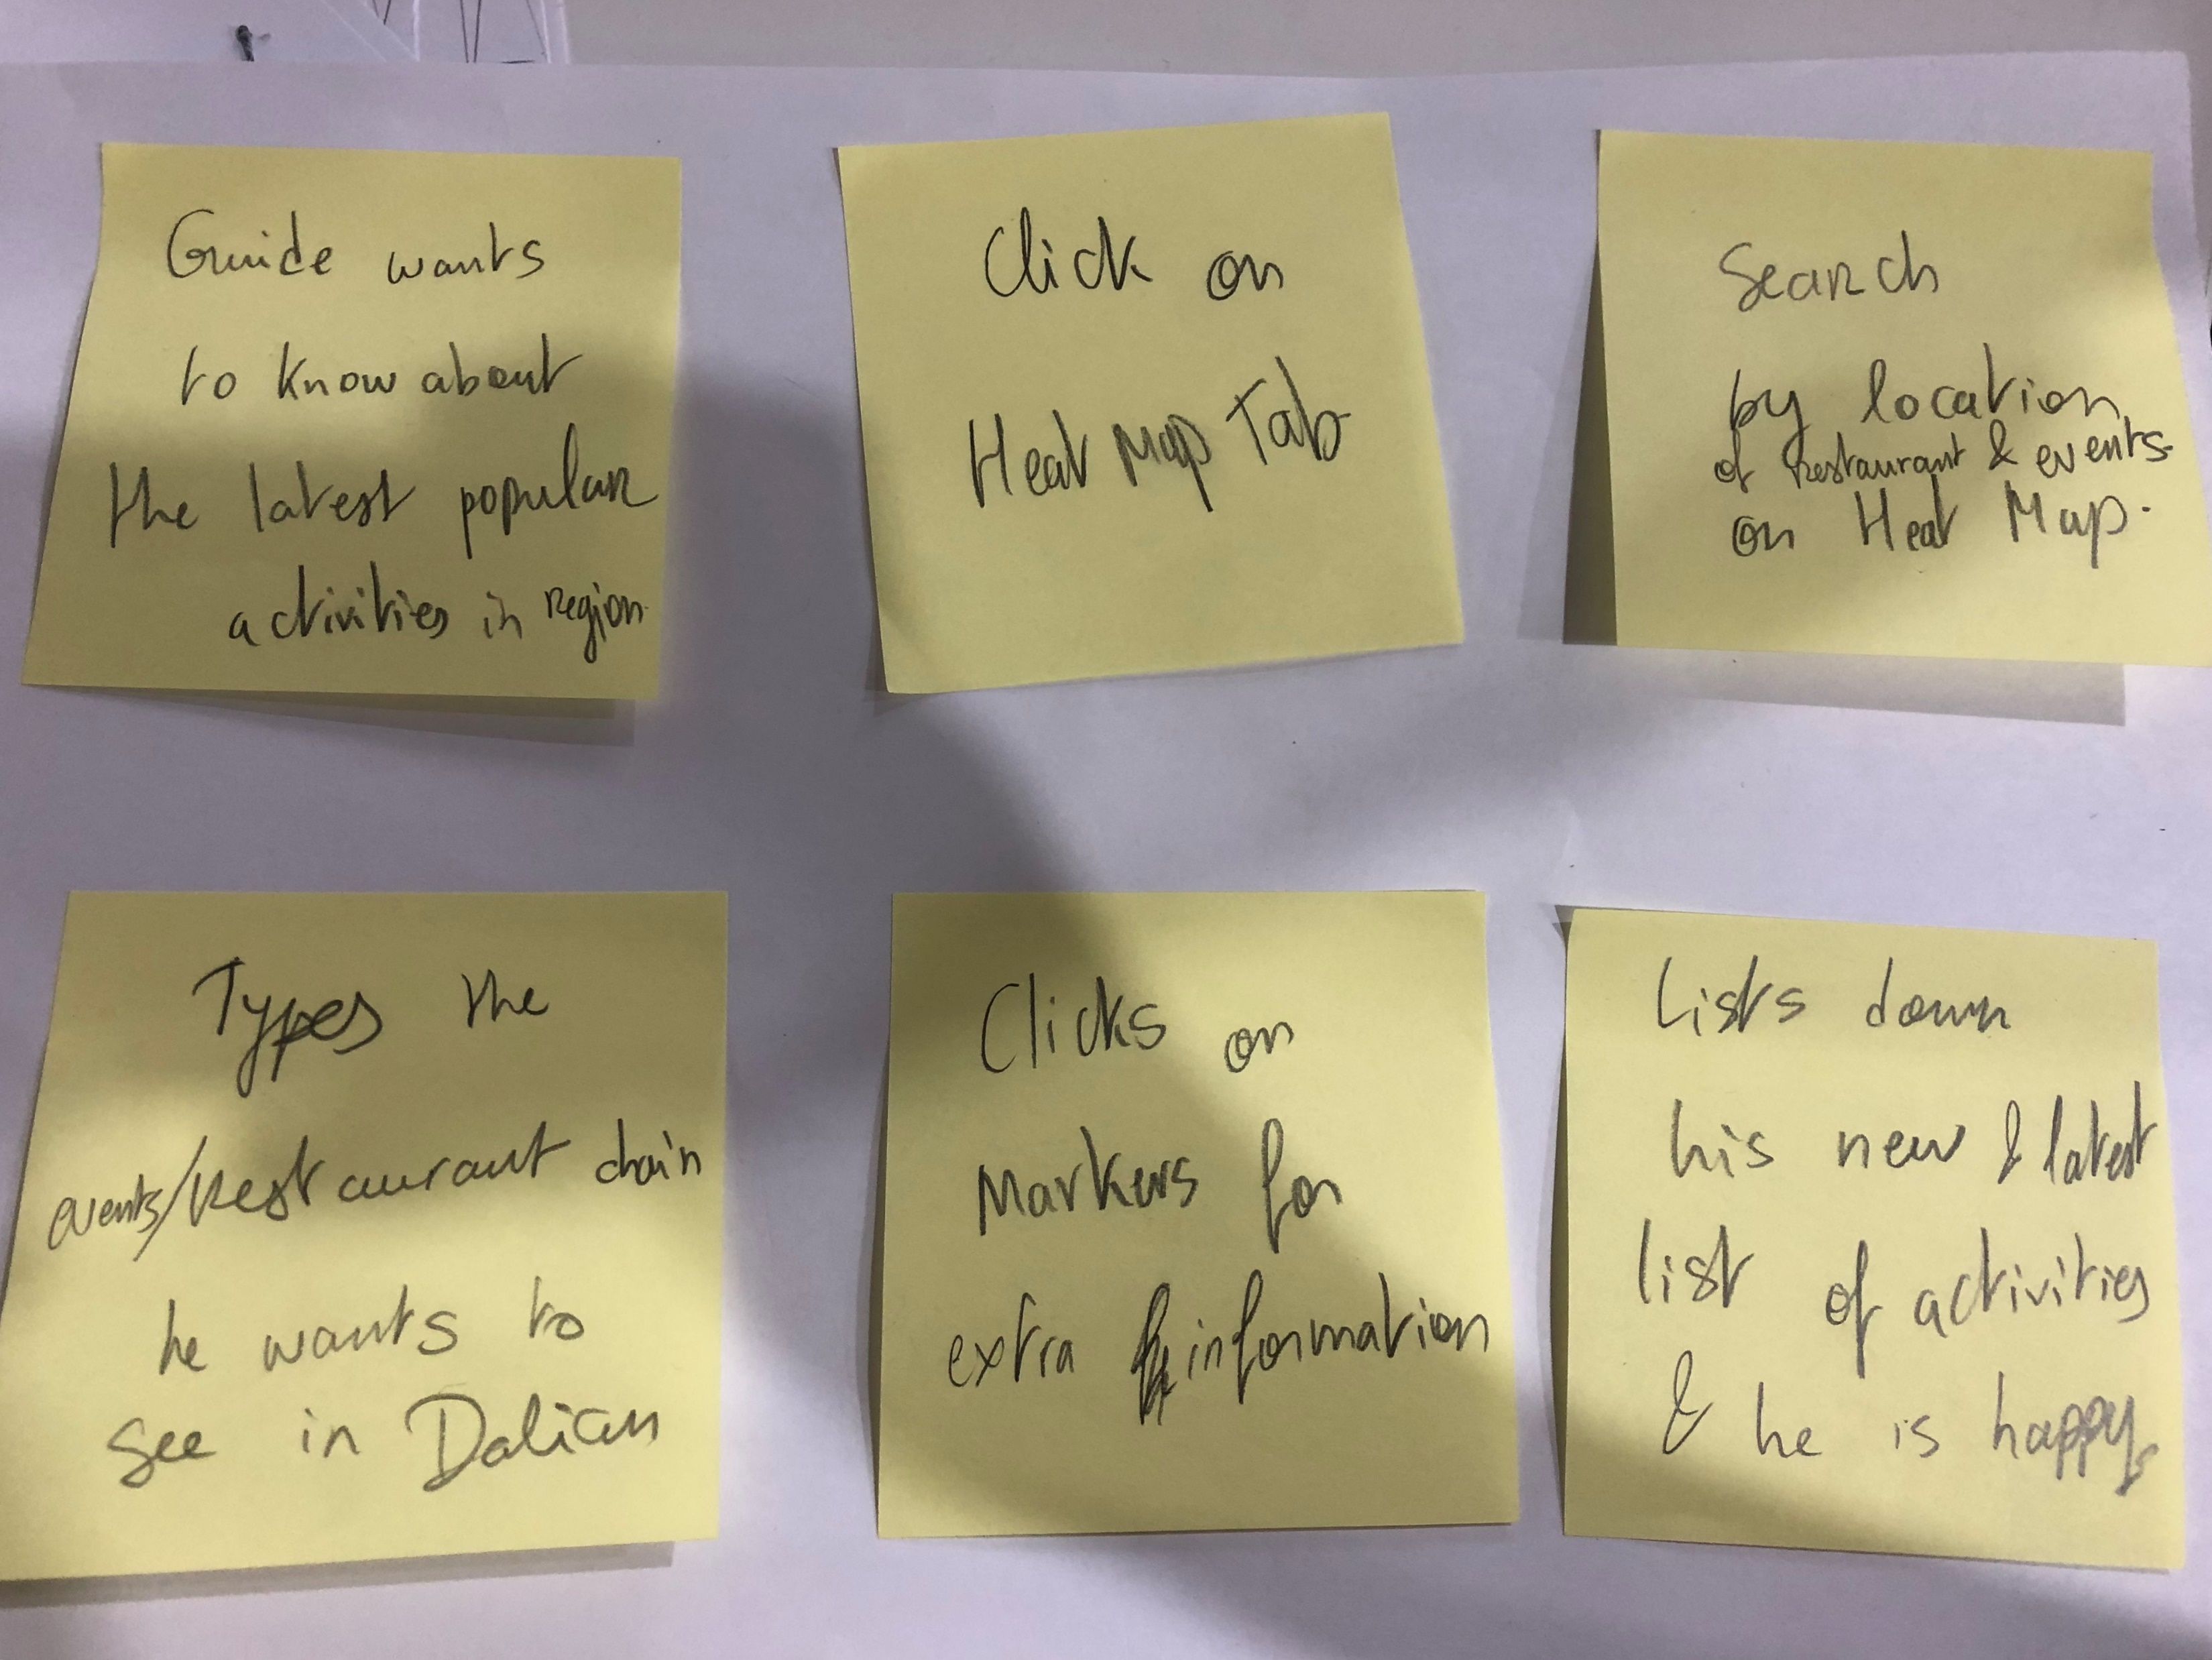 Guide wants
to know about
the latest popular
activities in region.
Click on
Heat Map Tab
Search
by location
of Restaurant & events
on Heat Map.
Types the
events/Restaurant chain
he wants to
see in Dalian
Clicks on
Markers for
extra information
Lists down
his new & latest
list of activities
& he is happy.